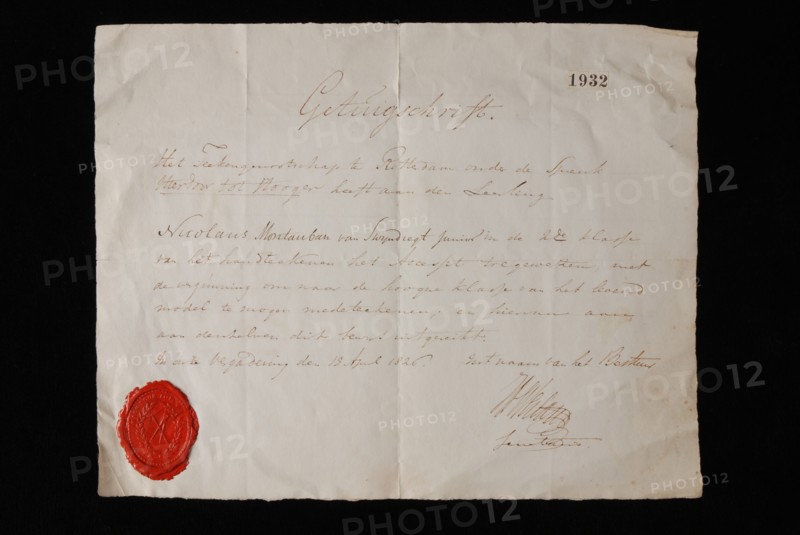 1932
Getuigschrift.
Het Teekengenootschap te Rotterdam onder de Spreuk
Hierdoor tot Hooger heeft aan den Leerling
Nicolaas Montauban van Swyndregt Junior in de 2e klasse
van het handteekenen het Accessit toegewezen, met
de vergunning om naar de hoogere klasse van het levend
model te mogen medeteekenen, en hiervan aan
aan denzelven dit bewys uitgereikt.
In onze Vergadering den 13 April 1826 Uit naam van het Bestuur
PHOTO12